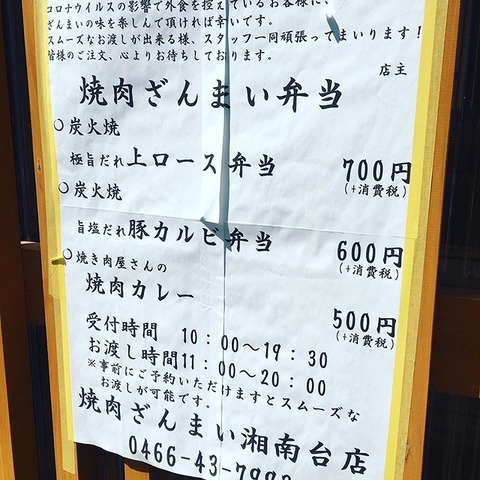 コロナウイルスの影響で外食を控えているお客様に、
ざんまいの味を楽しんで頂ければ幸いです。
スムーズなお渡しが出来る様、スタッフ一同頑張ってまいります！
皆様のご注文、心よりお待ちしております。
店主
焼肉ざんまい弁当
○炭火焼
極旨だれ上ロース弁当 700円
(+消費税)
○炭火焼
旨塩だれ豚カルビ弁当 600円
(+消費税)
○焼き肉屋さんの
焼肉カレー 500円
(+消費税)
受付時間 10:00～19:30
お渡し時間11:00～20:00
※事前にご予約いただけますとスムーズな
お渡しが可能です。
焼肉ざんまい湘南台店
0466-43-